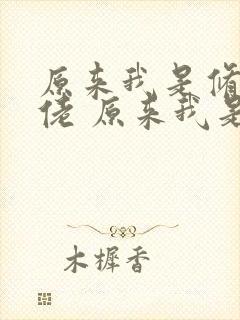 原来我是修
佬 原来我是
木樨香